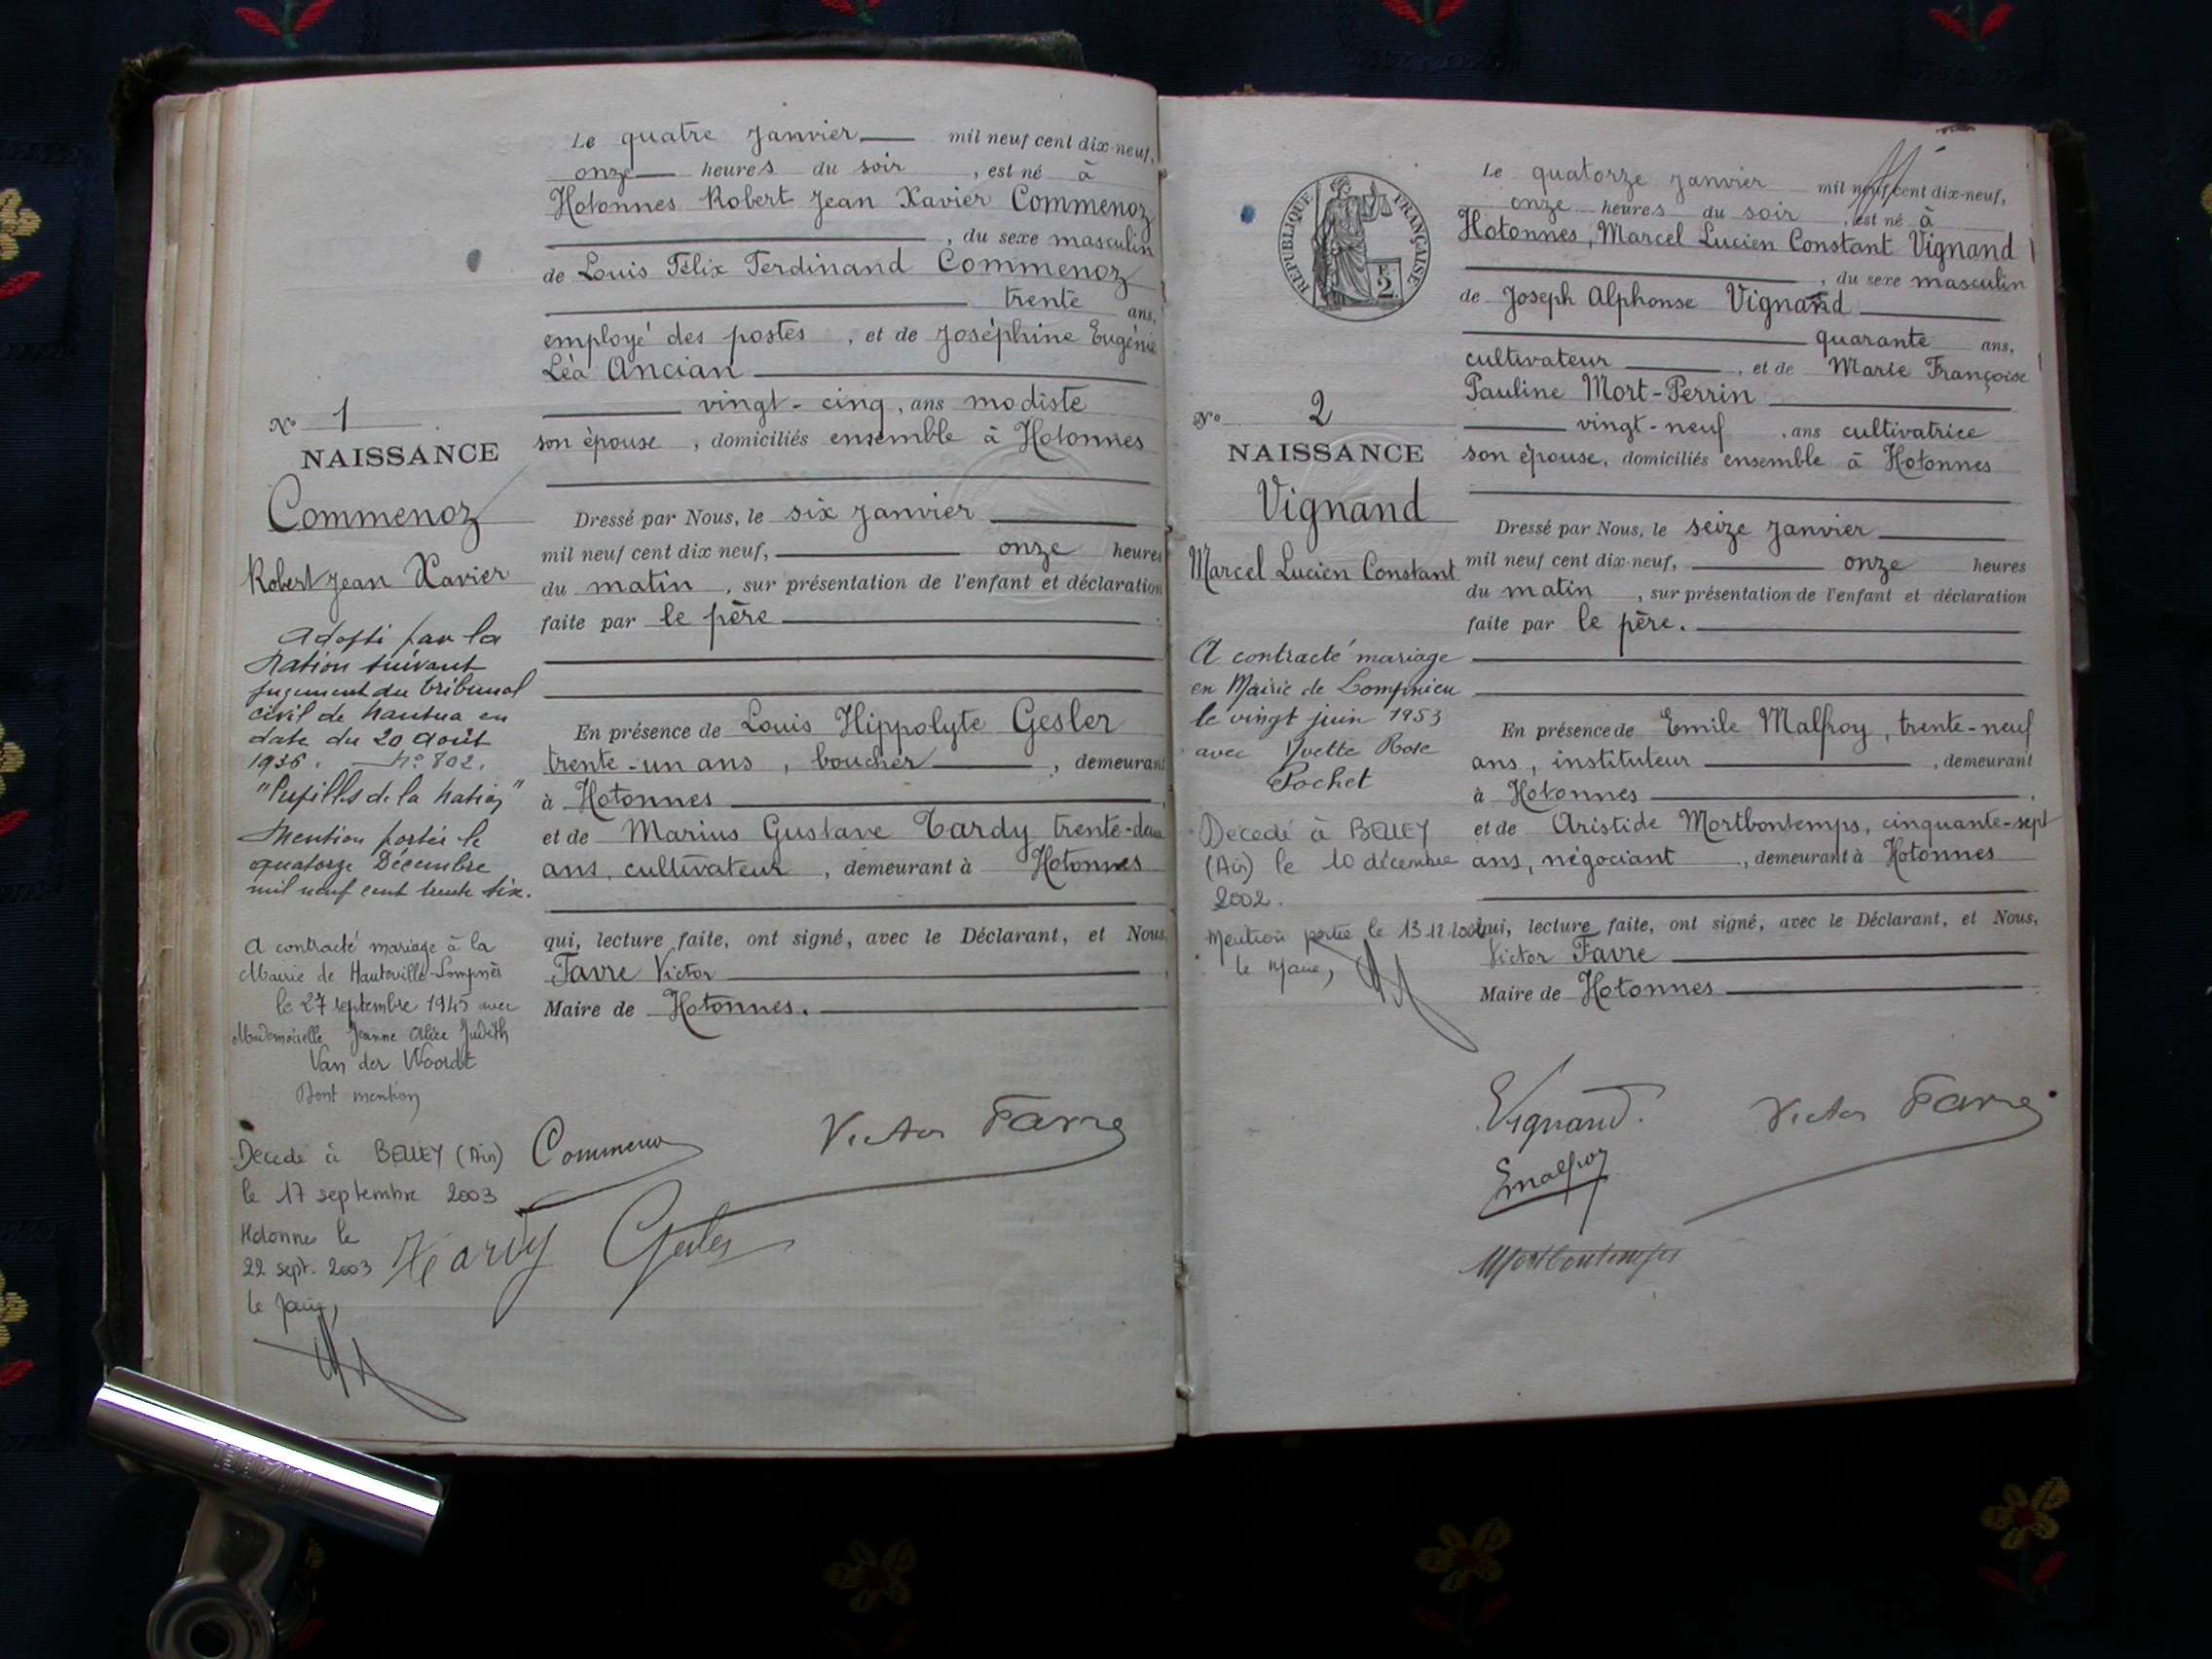 Le quatre Janvier mil neuf cent dix-neuf,
onze heures du soir , est né à
Hotonnes Robert Jean Xavier Commenoz
, du sexe masculin
de Louis Félix Ferdinand Commenoz
trente ans,
employé des postes , et de Joséphine Eugénie
Léa Ancian
vingt-cinq, ans modiste
son épouse , domiciliés ensemble à Hotonnes
Dressé par Nous, le six Janvier
mil neuf cent dix neuf, onze heures
du matin , sur présentation de l'enfant et déclaration
faite par le père
En présence de Louis Hippolyte Gesler
trente-un ans , boucher , demeurant
à Hotonnes
et de Marius Gustave Tardy trente-deux
ans, cultivateur , demeurant à Hotonnes
qui, lecture faite, ont signé, avec le Déclarant, et Nous,
Favre Victor
Maire de Hotonnes.
Nº 1
NAISSANCE
Commenoz
Robert Jean Xavier
Adopté par la
Nation suivant
jugement du tribunal
civil de Nantua en
date du 20 août
1936. Nº 802.
"Pupilles de la Nation"
Mention portée le
quatorze Décembre
mil neuf cent trente six.
A contracté mariage à la
Mairie de Hauteville-Lompnès
le 27 septembre 1945 avec
Mademoiselle Jeanne Alice Judith
Van der Woordt
Dont mention
Décédé à BELLEY (Ain)
le 17 septembre 2003
Hotonnes le
22 sept. 2003
le Maire,
Commenoz
Victor Favre
Tardy Gesler
REPUBLIQUE FRANÇAISE
2
Le quatorze Janvier mil neuf cent dix-neuf,
onze heures du soir , est né à
Hotonnes, Marcel Lucien Constant Vignand
, du sexe masculin
de Joseph Alphonse Vignand
quarante ans,
cultivateur , et de Marie Françoise
Pauline Mort-Perrin
vingt-neuf , ans cultivatrice
son épouse, domiciliés ensemble à Hotonnes
Dressé par Nous, le seize Janvier
mil neuf cent dix-neuf, onze heures
du matin , sur présentation de l'enfant et déclaration
faite par le père.
En présence de Emile Malfroy, trente-neuf
ans, instituteur , demeurant
à Hotonnes
et de Aristide Mortbontemps, cinquante-sept
ans, négociant , demeurant à Hotonnes
qui, lecture faite, ont signé, avec le Déclarant, et Nous,
Victor Favre
Maire de Hotonnes
Nº 2
NAISSANCE
Vignand
Marcel Lucien Constant
A contracté mariage
en Mairie de Lompnieu
le vingt juin 1953
avec Yvette Rose
Pochet
Décédé à BELLEY
(Ain) le 10 décembre
2002.
Mention portée le 13.12.2002
le Maire,
Vignand.
Victor Favre
E Malfroy
Mortbontemps